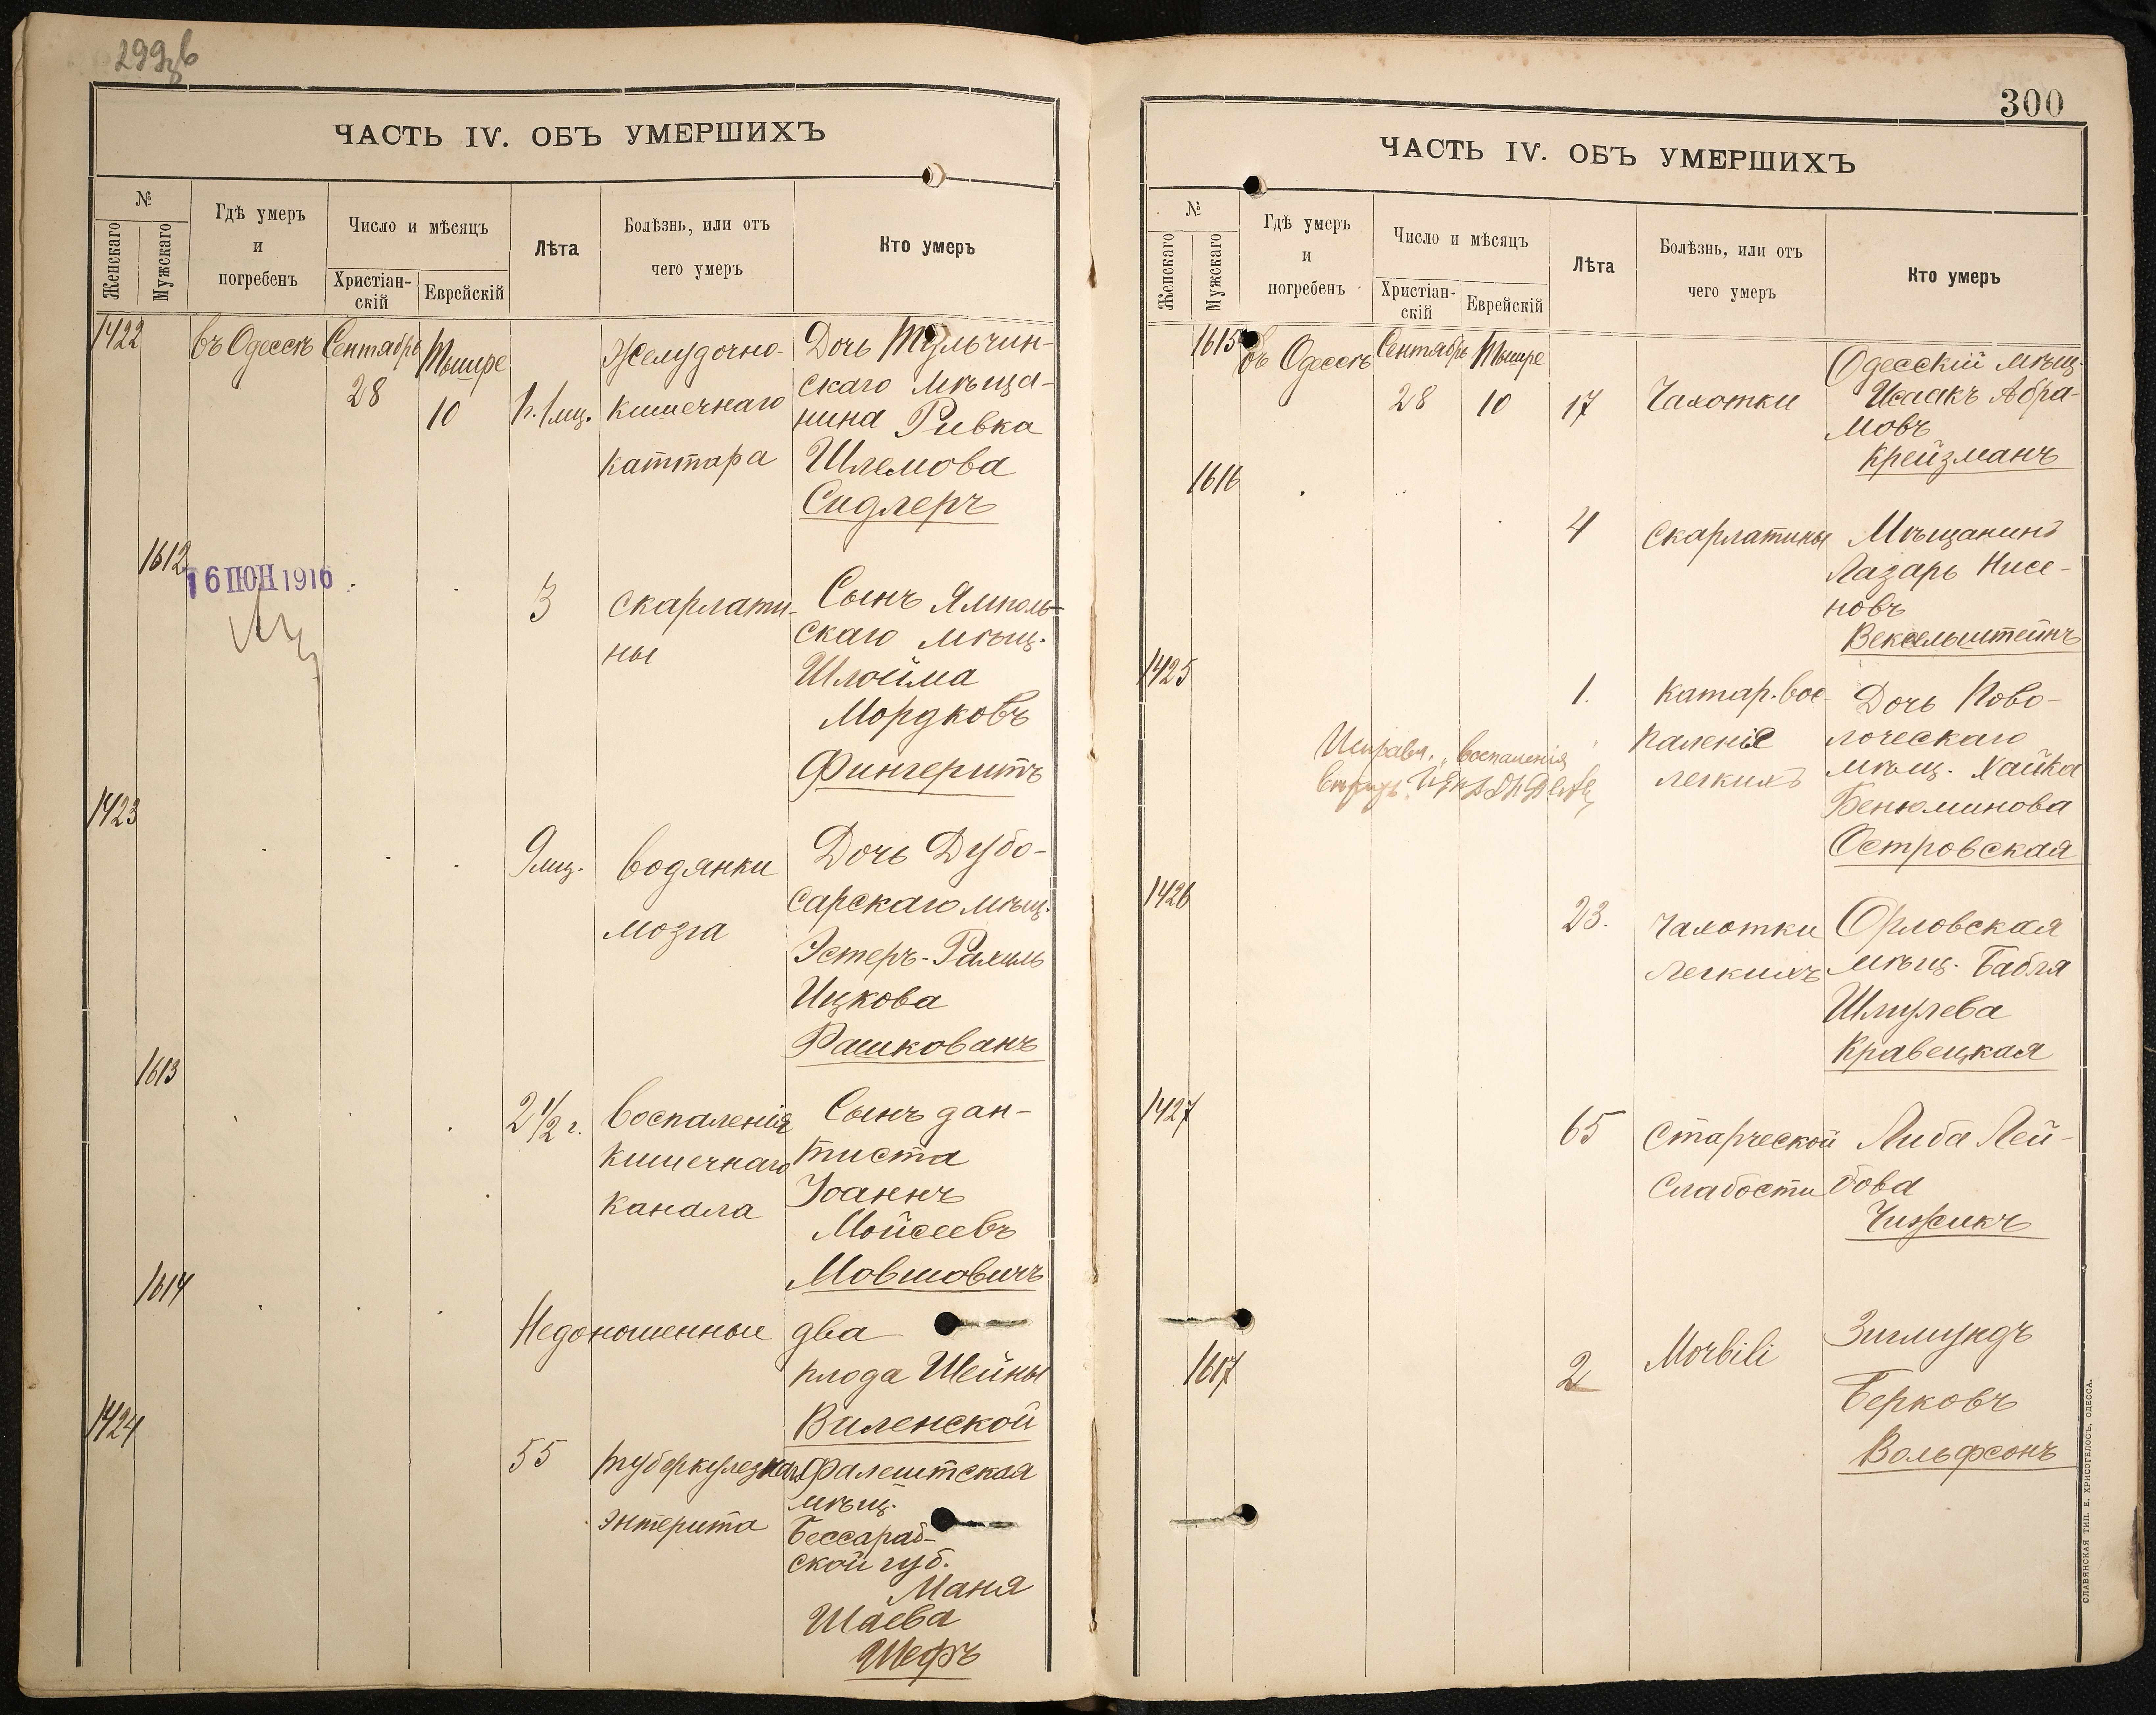 299
ЧАСТЬ IV. ОБЪ УМЕРШИХЪ
№
Женскаго
Мужскаго
Гдѣ умеръ
и
погребенъ
Число и мѣсяцъ
Христіан-
скій
Еврейскій
Лѣта
Болѣзнь, или отъ
чего умеръ
Кто умеръ
1422
въ Одессѣ
Сентябрь
28
Тышре
10
1 г. 1 мц.
Желудочно-
кишечнаго
каттара
Дочь Тульчин-
скаго мѣща-
нина Ривка
Шлемова
Сидлеръ
1612
16 ІЮН 1916
3
Скарлати-
ны
Сынъ Ямполь-
скаго мѣщ.
Шлойма
Мордковъ
Фингеритъ
1423
9 мц.
Водянки
мозга
Дочь Дубо-
сарскаго мѣщ.
Эстеръ-Рахиль
Ицкова
Рашкованъ
1613
2 1/2 г.
Воспаленія
кишечнаго
канала
Сынъ дан-
тиста
Іоаннъ
Мойсеевъ
Мовшовичъ
1614
Недоношенные два
плода Шейны
Виленской
1424
55
туберкулезнаго
энтерита
Фалештская
мѣщ.
Бессараб-
ской губ.
Маня
Шаева
Шефъ
300
ЧАСТЬ IV. ОБЪ УМЕРШИХЪ
№
Женскаго
Мужскаго
Гдѣ умеръ
и
погребенъ
Число и мѣсяцъ
Христіан-
скій
Еврейскій
Лѣта
Болѣзнь, или отъ
чего умеръ
Кто умеръ
1615
въ Одессѣ
Сентябрь
28
Тышре
10
17
Чахотки
Одесскій мѣщ.
Исаакъ Абра-
мовъ
Крейзманъ
1616
4
Скарлатины
Мѣщанинъ
Лазарь Нисе-
новъ
Вексельштейнъ
1425
1.
Катар. вос-
паленіе
легкихъ
Дочь Ново-
лоческаго
мѣщ. Хайка
Бенюминова
Островская
Исправл. "воспаленія"
1426
23.
Чахотки
легкихъ
Орловская
мѣщ. Бабля
Шмулева
Кравецкая
1427
65
Старческой
слабости
Либа Лей-
бова
Чижикъ
1617
2
Morbili
Зигмундъ
Берковъ
Вольфсонъ
СЛАВЯНСКАЯ ТИП. Е. ХРИСОГЕЛОСЪ, ОДЕССА.